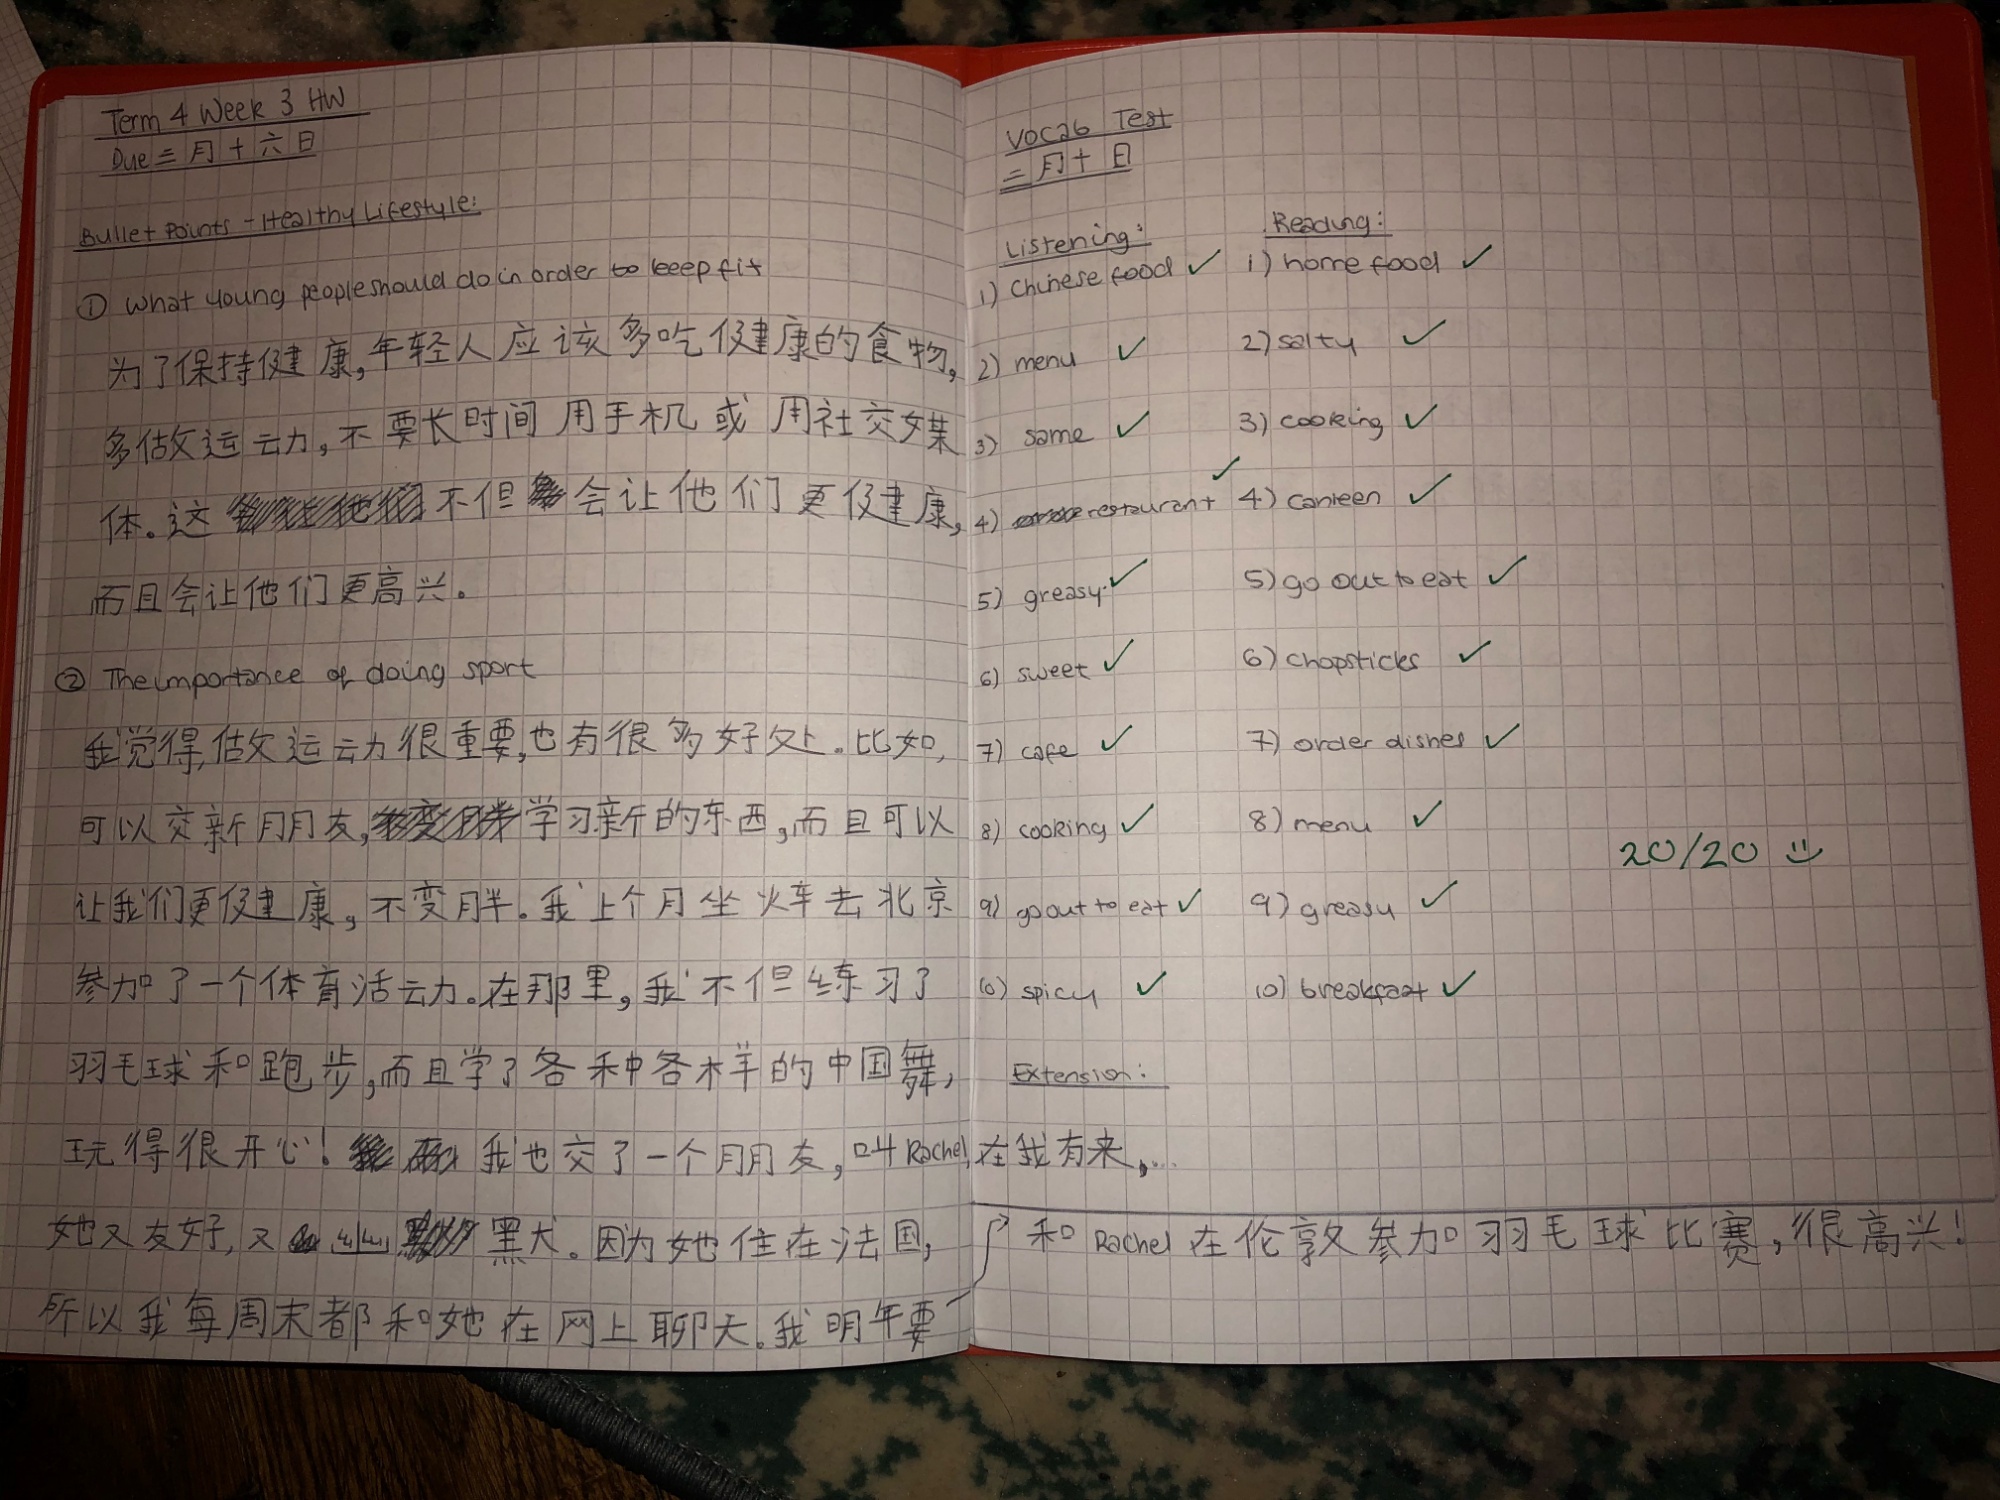 Term 4 Week 3 HW
Due 三月十六日
Bullet Points - Healthy Lifestyle:
① What young people should do in order to keep fit
为了保持健康,年轻人应该多吃健康的食物,
多做运动,不要长时间用手机或用社交媒
体。这不但会让他们更健康,
而且会让他们更高兴。
② The importance of doing sport
我觉得,做运动很重要,也有很多好处。比如,
可以交新朋友,学习新的东西,而且可以
让我们更健康,不变胖。我上个月坐火车去北京
参加了一个体育活动。在那里,我不但练习了
羽毛球和跑步,而且学了各种各样的中国舞,
玩得很开心!我也交了一个朋友,叫Rachel,
她又友好,又幽默。因为她住在法国,
所以我每周末都和她在网上聊天。我明年要
Vocab Test
三月十日
Listening:
1) Chinese food ✓
2) menu ✓
3) same ✓
4) restaurant ✓
5) greasy ✓
6) sweet ✓
7) cafe ✓
8) cooking ✓
9) go out to eat ✓
10) spicy ✓
Reading:
1) home food ✓
2) salty ✓
3) cooking ✓
4) canteen ✓
5) go out to eat ✓
6) chopsticks ✓
7) order dishes ✓
8) menu ✓
9) greasy ✓
10) breakfast ✓
20/20
Extension:
在我有来,...
和Rachel在伦敦参加羽毛球比赛,很高兴!